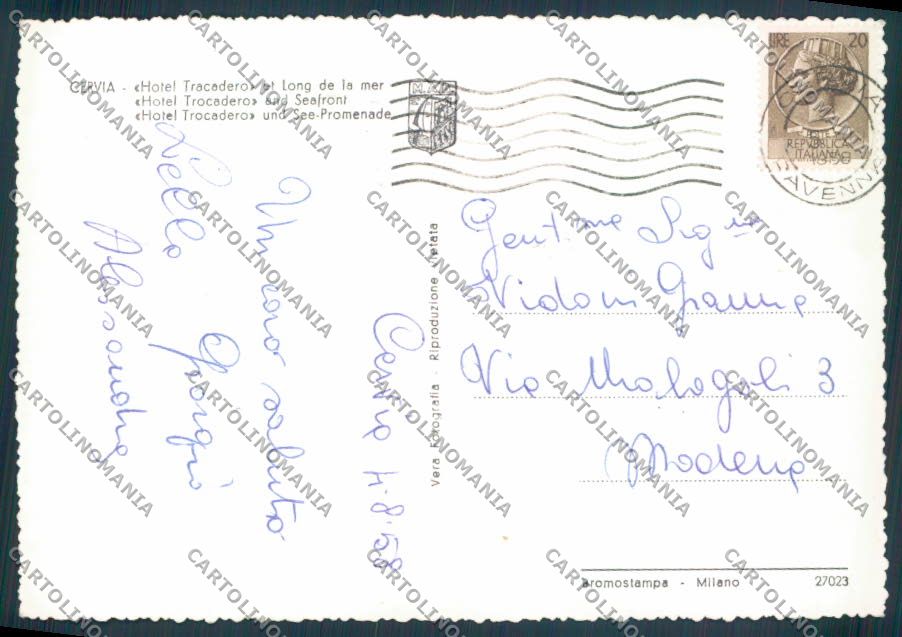 CERVIA - «Hotel Tracadero» et Long de la mer
«Hotel Trocadero» and Seafront
«Hotel Trocadero» und See-Promenade
LIRE 20
REPVBBLICA
ITALIANA
AVENNA
Cervia 4-8-58
Un caro saluto
Giorgio
Lello
Alessandra
Vera Fotografia - Riproduzione vietata
Gent.me Sig.ne
Vidoni Gianna
Via Malagoli 3
Modena
Bromostampa - Milano
27023
CARTOLINOMANIA